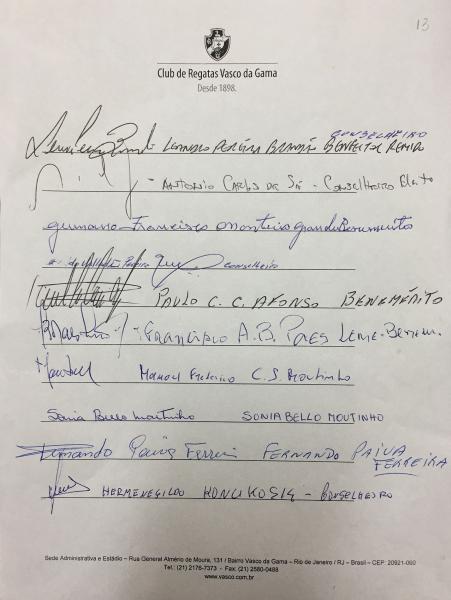 13
Club de Regatas Vasco da Gama
Desde 1898.
CONSELHEIRO
LEANDRO PEREIRA BENFEITOR REMIDO
- ANTONIO CARLOS DE SÁ - CONSELHEIRO Eleito
Francisco Monteiro Grande Benemérito
Pereira conselheiro
PAULO C. C. AFONSO BENEMÉRITO
FRANCISCO A. B. PAES LEME - BENEM.
Manoel Frederico C. S. Moutinho
Sonia Bello Moutinho SONIA BELLO MOUTINHO
Fernando Paiva Ferreira FERNANDO PAIVA
FERREIRA
HERMENEGILDO - CONSELHEIRO
Sede Administrativa e Estádio – Rua General Almério de Moura, 131 / Bairro Vasco da Gama – Rio de Janeiro / RJ – Brasil – CEP: 20921-060
Tel.: (21) 2176-7373 - Fax: (21) 2580-0488
www.vasco.com.br